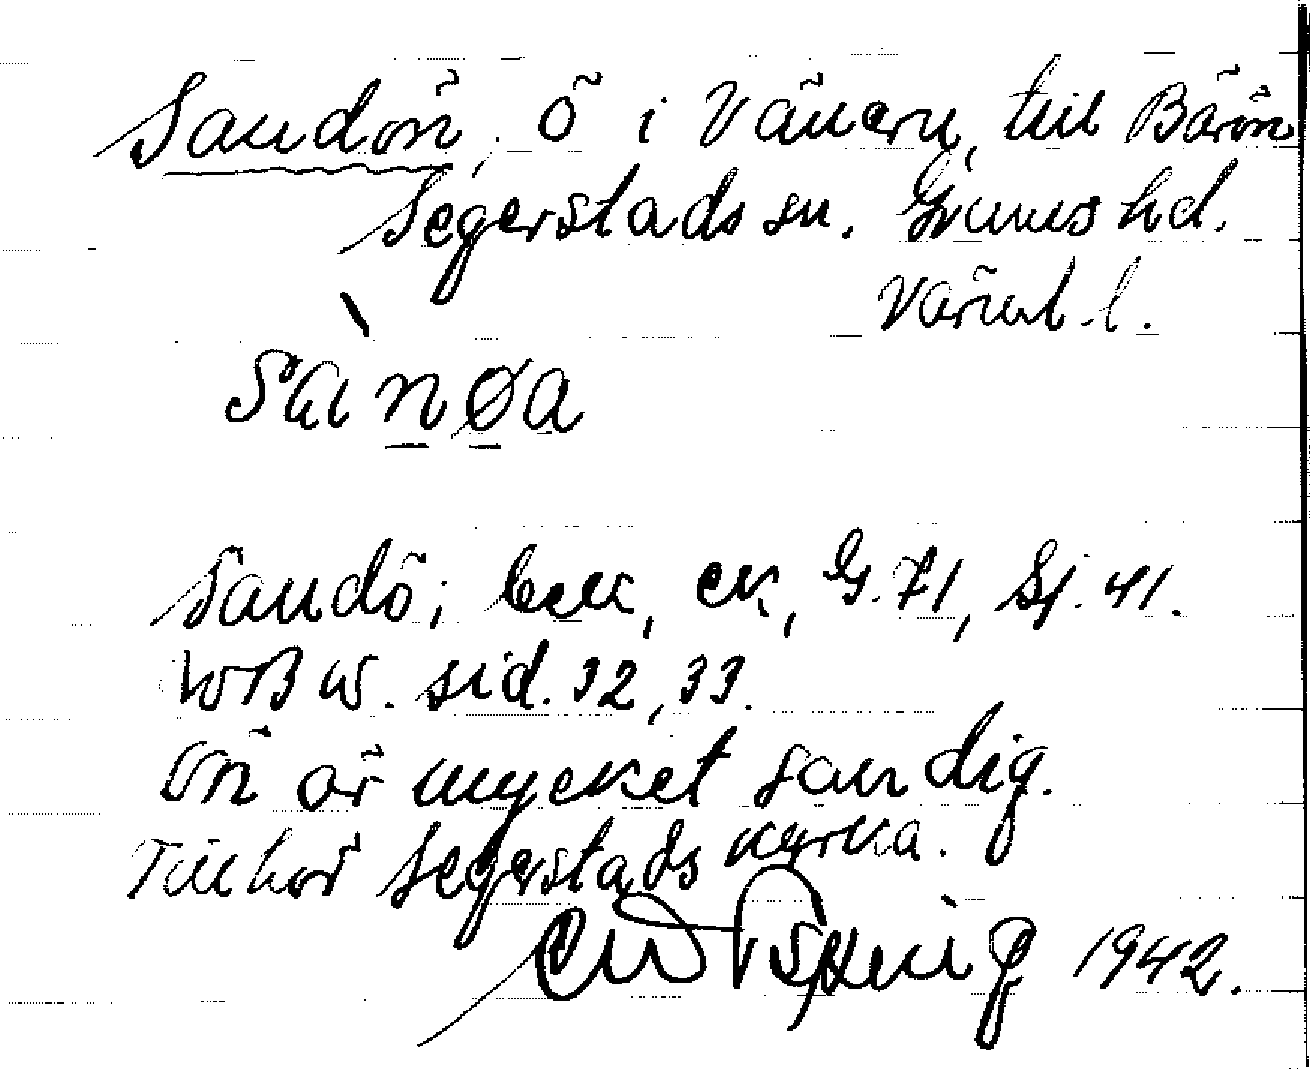 Sandön, ö i Vänern, till Bärön
Segerstads sn. Grums hd.
Värml. l.
sànøa
Sandö; bek, ek, G. 71, Sj. 41.
WBW. sid. 32, 33.
Ön är mycket sandig.
Tillhör Segerstads kyrka.
1942.